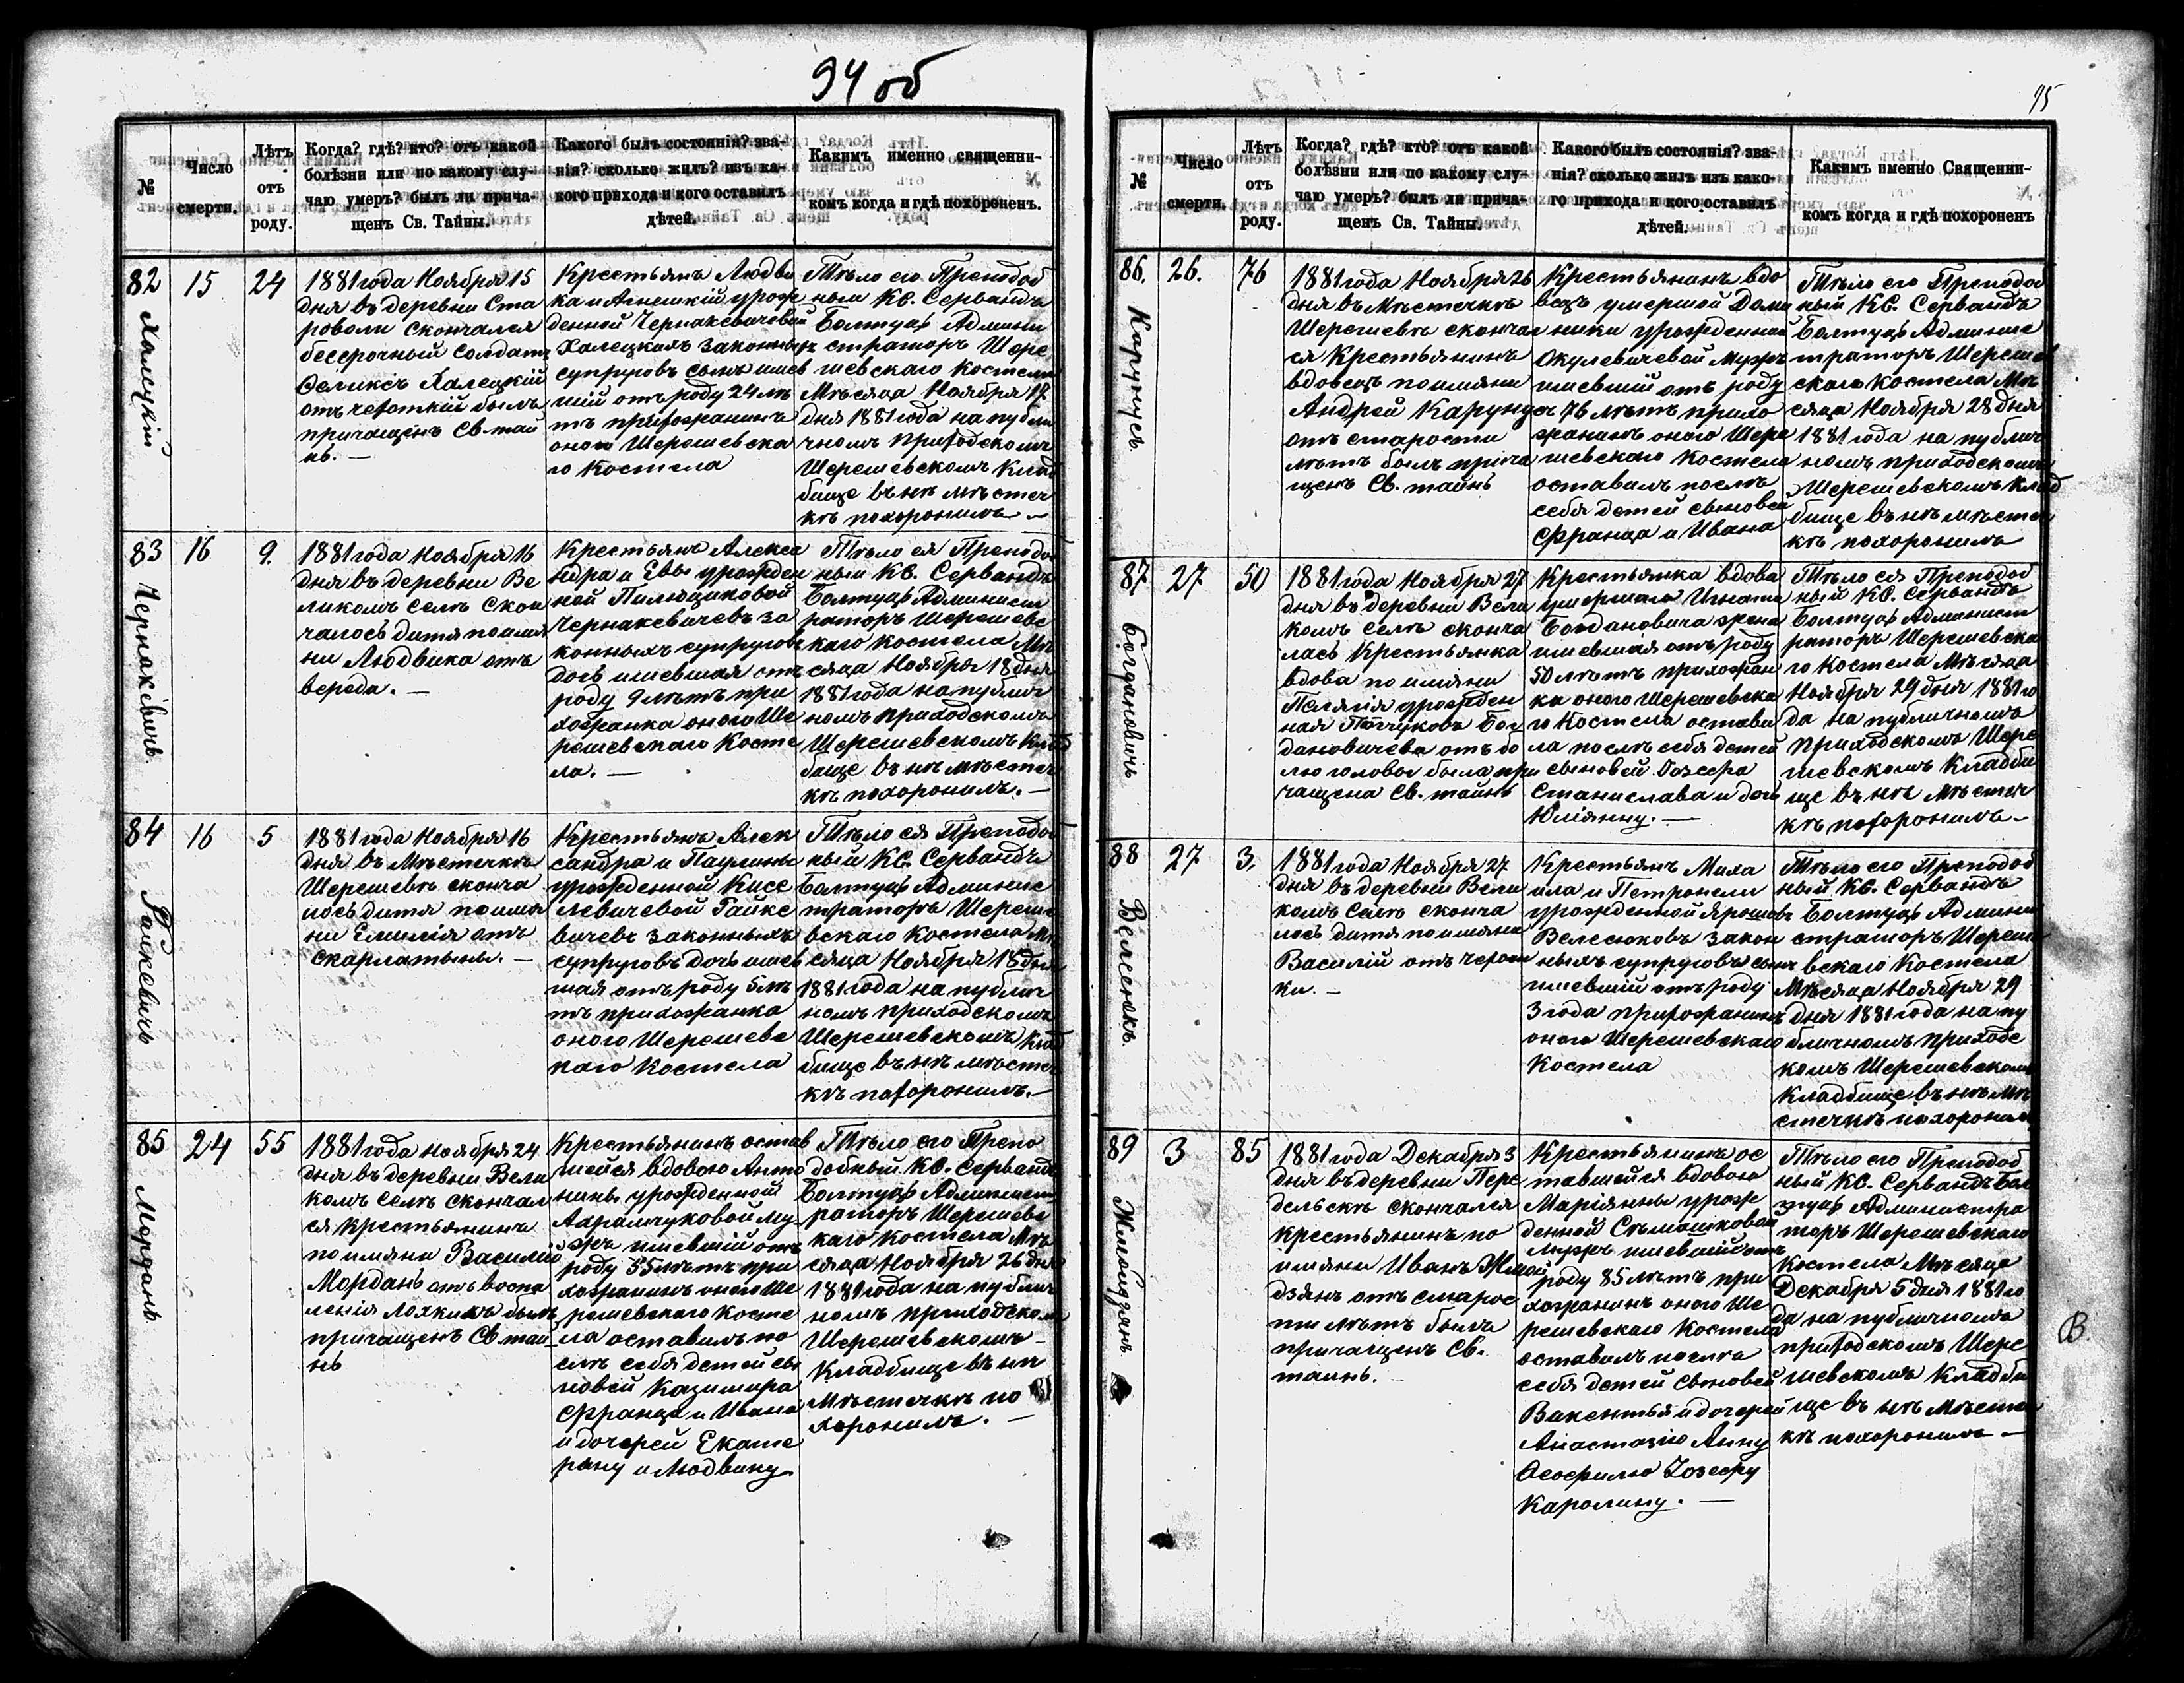 94 об
№
Число
смерти.
Лѣтъ
отъ
роду.
Когда? гдѣ? кто? отъ какой
болѣзни или по какому слу-
чаю умеръ? былъ ли прича-
щенъ Св. Тайны.
Какого былъ состоянія? зва-
нія? сколько жилъ? изъ ка-
кого прихода и кого оставилъ
дѣтей.
Какимъ именно священни-
комъ когда и гдѣ похороненъ.
82
Халецкій
15
24
1881 года Ноября 15
дня въ деревни Ста
роволи скончался
бессрочный солдатъ
Феликсъ Халецкій
отъ чероткій былъ
причащенъ Св. тай
нъ. —
Крестьянъ Людви
ка и Агнешкій урож
денной Чернакевичевой
Халецкихъ законныхъ
супруговъ сынъ имев
шій отъ роду 24 лѣ
тъ прихожанинъ
оного Шерешевска
го Костела
Тѣло его Преподоб
ный Кс. Сервандъ
Болтуцъ Админи
страторъ Шере
шевскаго Костела
Мѣсяца Ноября 17
дня 1881 года на публи
чномъ приходскомъ
Шерешевскомъ Клад
бище въ нѣ мѣстеч
кѣ похоронилъ —
83
Чернакевичъ.
16
9.
1881 года Ноября 16
дня въ деревни Ве
ликомъ селѣ скон
чалось дитя по имя
ни Людвика отъ
вереда. —
Крестьянъ Алекса
ндра и Евы урожден
ной Пилющиковой
Чернакевичевъ за
конныхъ супруговъ
дочь имевшая отъ
роду 9 лѣтъ при
хожанка оного Ше
решевскаго Косте
ла. —
Тѣло ея Преподоб
ный Кс. Сервандъ
Болтуцъ Админист
раторъ Шерешевс
каго Костела Мѣ
сяца Ноября 18 дня
1881 года на публич
номъ приходскомъ
Шерешевскомъ Клад
бище въ нѣ мѣстеч
кѣ похоронилъ. —
84
Гайкевичъ
16
5
1881 года Ноября 16
дня въ Мѣстечкѣ
Шерешевѣ сконча
лось дитя по имя
ни Емилія отъ
скарлатыны. —
Крестьянъ Алек
сандра и Паулины
урожденной Кисе
левичевой Гайке
вичевъ законныхъ
супруговъ дочь имев
шая отъ роду 5 лѣ
тъ прихожанка
оного Шерешевс
каго Костела
Тѣло ея Преподоб
ный Кс. Сервандъ
Болтуцъ Админис
траторъ Шереше
вскаго Костела Мѣ
сяца Ноября 18 дня
1881 года на публич
номъ приходскомъ
Шерешевскомъ Клад
бище въ нѣ мѣстеч
кѣ похоронилъ. —
85
Морданъ
24
55
1881 года Ноября 24
дня въ деревни Вели
комъ селѣ скончал
ся крестьянинъ
по имяни Василій
Морданъ отъ воспа
ленія лохкихъ былъ
причащенъ Св. тай
нъ
Крестьянинъ остав
шейся вдовою Анто
нины урожденной
Адрамчуковой му
жъ имевшій отъ
роду 55 лѣтъ при
хожанинъ оного Ше
решевскаго Косте
ла оставилъ по
слѣ себя детей сы
новей Казимира
Франца и Ивана
и дочерей Екате
рину и Людвику
Тѣло его Препо
добный Кс. Сервандъ
Болтуцъ Админист
раторъ Шерешевс
каго Костела Мѣ
сяца Ноября 26 дня
1881 года на публич
номъ приходском
Шерешевскомъ
Кладбище въ нѣ
Мѣстечкѣ по
хоронилъ. —
95
№
Число
смерти.
Лѣтъ
отъ
роду.
Когда? гдѣ? кто? отъ какой
болѣзни или по какому слу-
чаю умеръ? былъ ли прича-
щенъ Св. Тайны.
Какого былъ состоянія? зва-
нія? сколько жилъ изъ како-
го прихода и кого оставилъ
дѣтей.
Какимъ именно Священни-
комъ когда и гдѣ похороненъ
86.
Карунусъ.
26.
76
1881 года Ноября 26
дня въ Мѣстечкѣ
Шерешевѣ скончал
ся Крестьянинъ
вдовецъ по имяни
Андрей Карунусъ
отъ старости
лѣтъ былъ прича
щенъ Св. тайнъ
Крестьянинъ вдо
вецъ умершой Доми
ники урожденной
Окулевичевой мужъ
имевшій отъ роду
76 лѣтъ прихо
жанинъ оного Шере
шевскаго Костела
оставилъ послѣ
себя детей сыновей
Франца и Ивана
Тѣло его Преподоб
ный Кс. Сервандъ
Болтуцъ Админис
траторъ Шерешев
скаго Костела Мѣ
сяца Ноября 28 дня
1881 года на публич
номъ приходскомъ
Шерешевскомъ Клад
бище въ нѣ мѣстеч
кѣ похоронилъ
87
Богдановичъ
27
50
1881 года Ноября 27
дня въ деревни Вели
комъ селѣ сконча
лась Крестьянка
вдова по имяни
Пелягія урожден
ная Бог
дановичева отъ бо
лю головы была при
чащена Св. тайнъ
Крестьянка вдова
умершаго Игната
Богдановича жена
имевшая отъ роду
50 лѣтъ прихожан
ка оного Шерешевска
го Костела остави
ла послѣ себя детей
сыновей Іозефа
Станислава и доч
Юліянну. —
Тѣло ея Преподоб
ный Кс. Сервандъ
Болтуцъ Админист
раторъ Шерешевска
го Костела Мѣсяца
Ноября 29 дня 1881 го
да на публичномъ
приходскомъ Шере
шевскомъ Кладби
ще въ нѣ Мѣстеч
кѣ похоронилъ —
88
Велесюкъ.
27
3.
1881 года Ноября 27
дня въ деревни Вели
комъ селѣ сконча
лось дитя по имяни
Василій отъ черот
ки. —
Крестьянъ Миха
ила и Петронели
урожденной Ярошовъ
Велесюковъ закон
ныхъ супруговъ сынъ
имевшій отъ роду
3 года прихожанинъ
оного Шерешевскаго
Костела
Тѣло его Преподоб
ный Кс. Сервандъ
Болтуцъ Админи
страторъ Шереше
вскаго Костела
Мѣсяца Ноября 29
дня 1881 года на пу
бличномъ приходс
комъ Шерешевскомъ
Кладбище въ нѣ Мѣ
стечкѣ похоронилъ
89
Жмойдзянъ.
3
85
1881 года Декабря 3
дня въ деревни Пере
дельскѣ скончался
крестьянинъ по
имяни Иванъ Жмой
дзянъ отъ старос
ти лѣтъ былъ
причащенъ Св.
таинъ. —
Крестьянинъ ос
тавшейся вдовою
Маріянны урож
денной Сѣмашковой
мужъ имевшій отъ
роду 85 лѣтъ при
хожанинъ оного Ше
решевскаго Костела
оставилъ послѣ
себя детей сыновей
Викентья и дочерей
Анастазію Анну
Феофилю Іозефу
Каролину. —
Тѣло его Преподоб
ный Кс. Сервандъ Бол
туцъ Администра
торъ Шерешевскаго
Костела Мѣсяца
Декабря 5 дня 1881 го
да на публичномъ
приходскомъ Шере
шевскомъ Кладби
ще въ нѣ Мѣстеч
кѣ похоронилъ —
В.